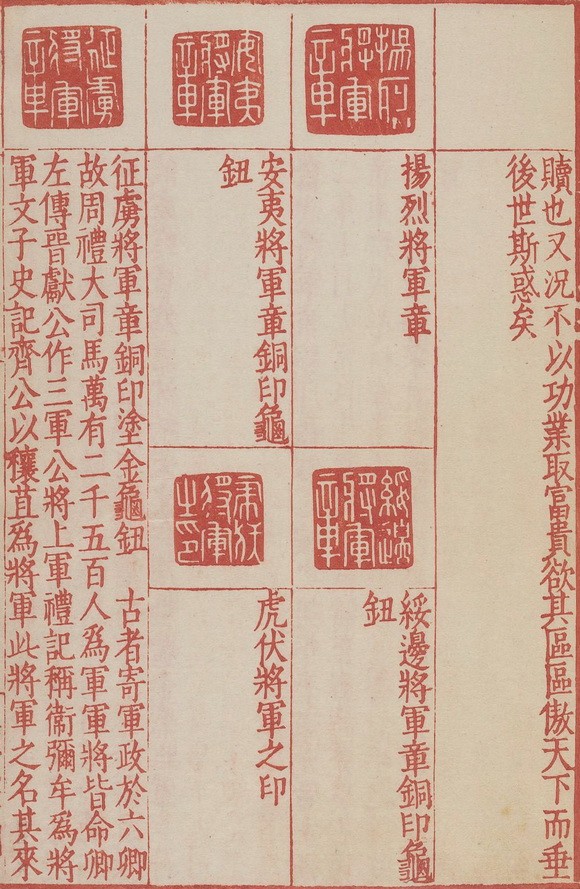 贖也又況不以功業取富貴欲其區區傲天下而垂
後世斯惑矣
揚烈將軍章
揚烈將軍章
綏邊將軍章
綏邊將軍章銅印龜
鈕
安夷將軍章
安夷將軍章銅印龜
鈕
虎伏將軍之印
征虜將軍章
征虜將軍章銅印塗金龜鈕 古者寄軍政於六卿
故周禮大司馬萬有二千五百人爲軍軍將皆命卿
左傳晉獻公作三軍公將上軍禮記稱衞彌牟爲將
軍文子史記齊公以穰苴爲將軍此將軍之名其來